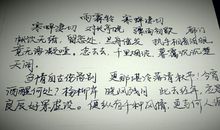 雨霖铃 寒蝉凄切
寒蝉凄切 对长亭晚 骤雨初歇 都门
帐饮无绪 留恋处 兰舟催发 执手相看泪眼
竟无语凝噎 念去去 千里烟波 暮霭沉沉楚
天阔
多情自古伤离别 更那堪冷落清秋节 今宵
酒醒何处 杨柳岸 晓风残月 此去经年 应是
良辰好景虚设 便纵有千种风情 更与何人说